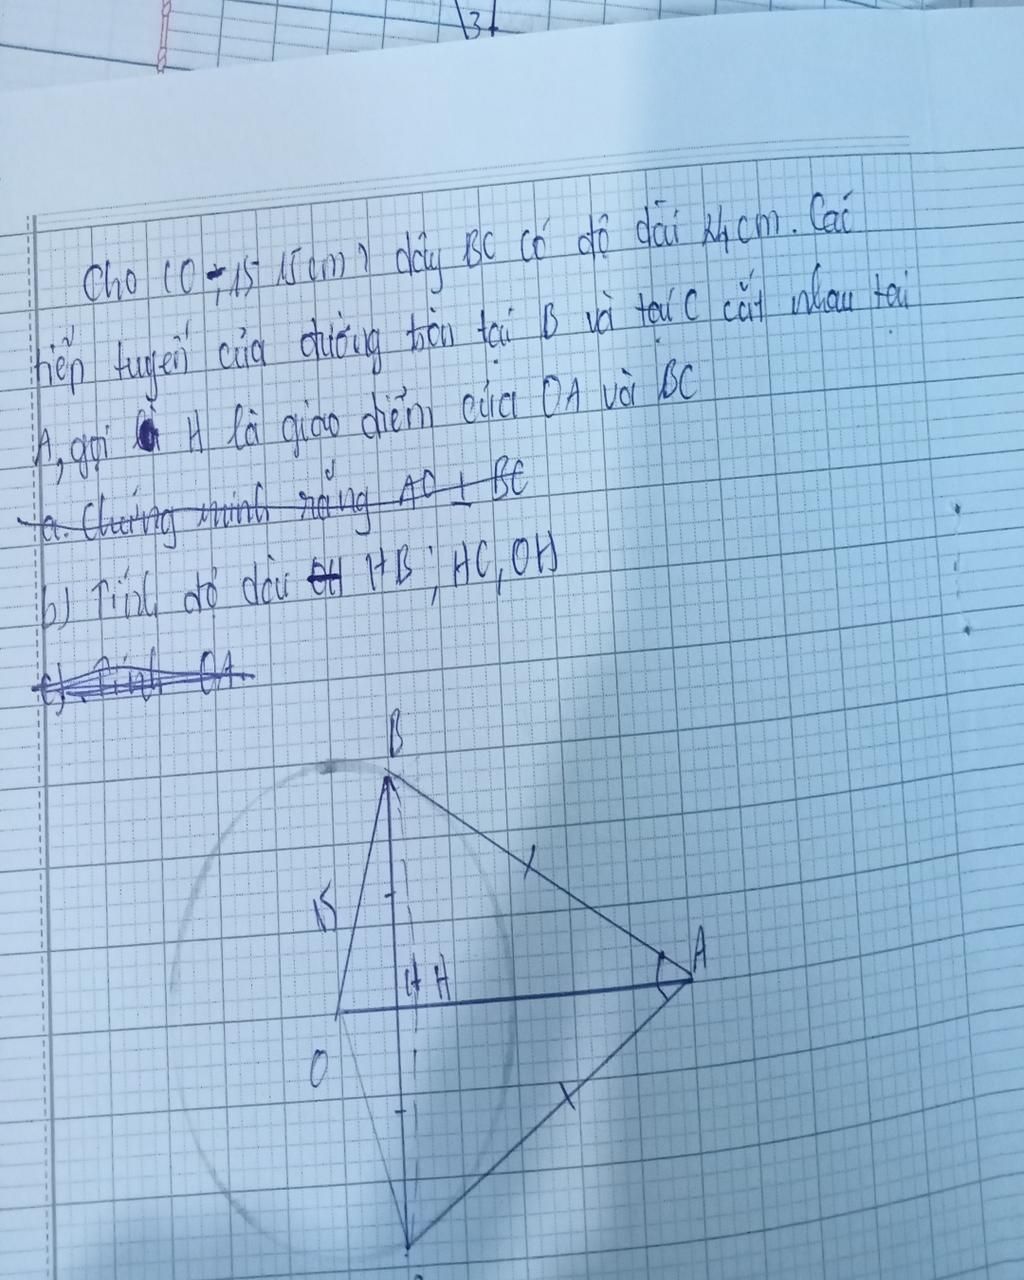 131
Cho (O; 15 15cm) dây BC có độ dài 24cm. Các
tiếp tuyến của đường tròn tại B và tại C cắt nhau tại
A, gọi H là giao điểm của OA và BC
a. Chứng minh rằng AO ⊥ BC
b) Tính độ dài OH HB; HC, OH
c) Tính OA
B
15
H H
A
O